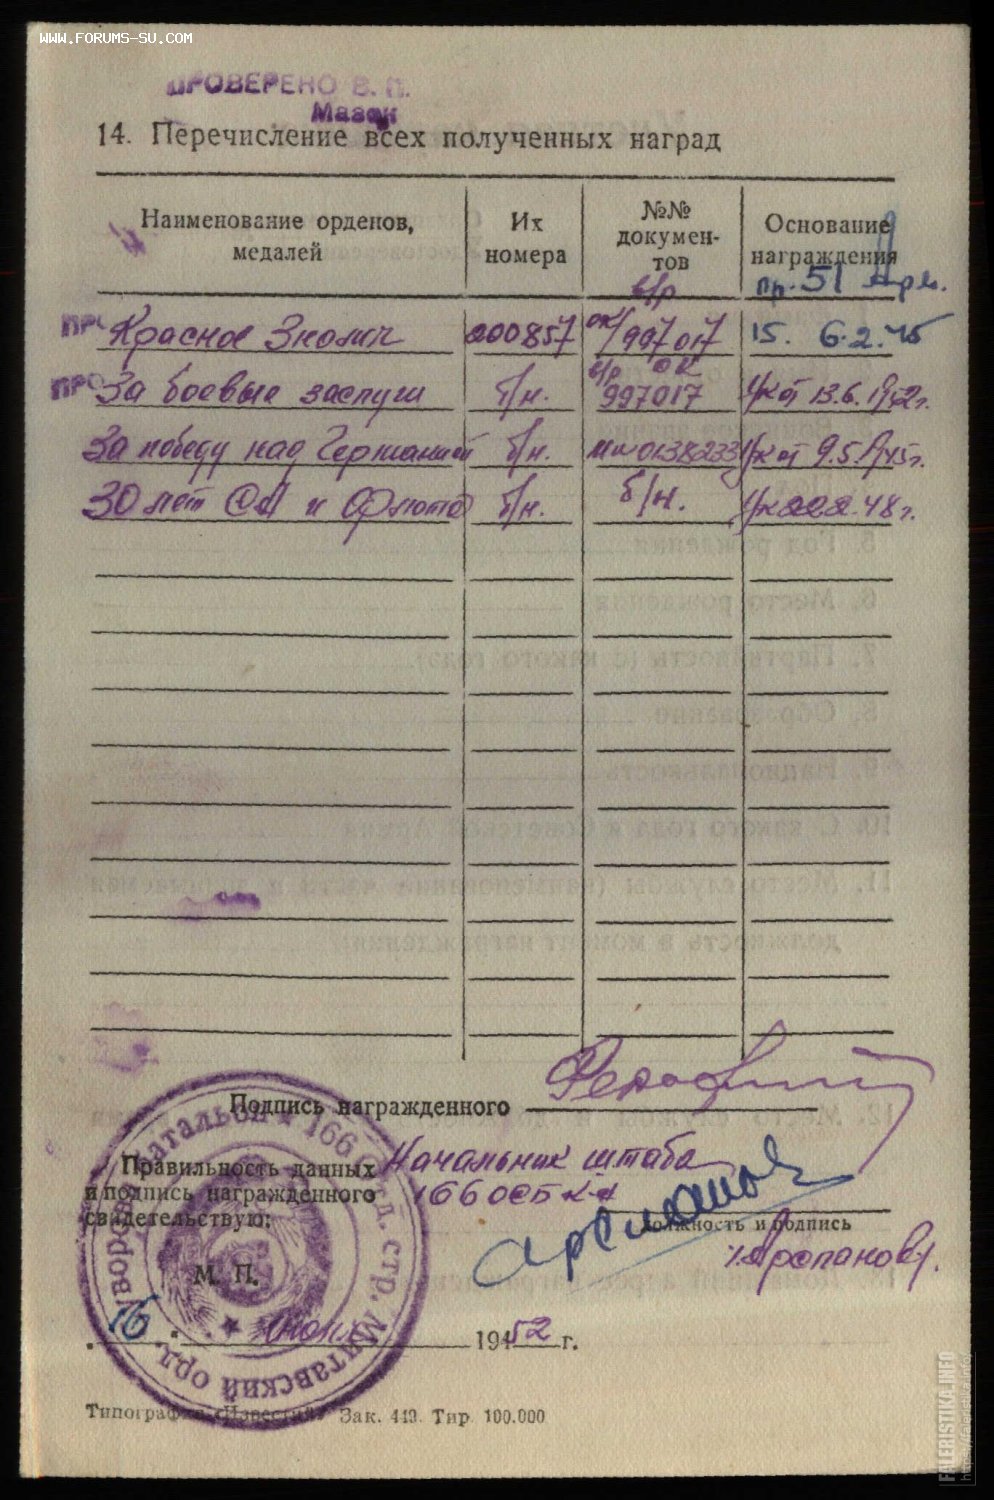 WWW.FORUMS-SU.COM
ПРОВЕРЕНО В. П.
Мазок
14. Перечисление всех полученных наград
Наименование орденов, медалей
Их номера
№№ документов
Основание награждения
в/р
пр. 51 Арм.
Красное Знамя 200857 ОК/997017 15. 6.2.45
За боевые заслуги б/н. в/р ОК 997017 Ук от 13.6.1952г.
За победу над Германией б/н. №0138233 Ук от 9.5.1945г.
30 лет СА и Флота б/н. б/н. Ук 22.2.48г.
Подпись награжденного
Правильность данных
и подпись награжденного
свидетельствую:
Начальник штаба
166 ОСБ
должность и подпись
/Арсланов/.
М. П.
166 Отд. стр. Митавский орд. Суворова батальон
"16" 1952 г.
Типография «Известий» Зак. 449. Тир. 100.000
FALERISTIKA.INFO
https://faleristika.info/